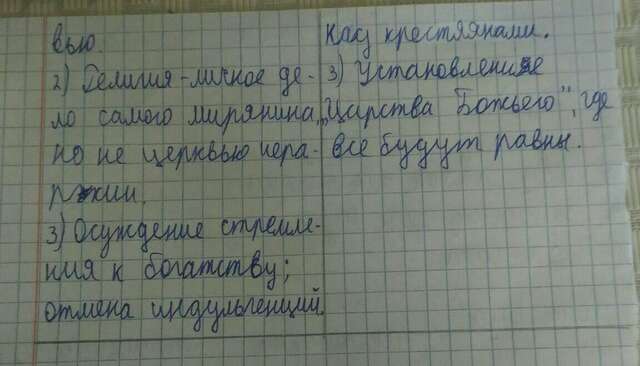 вью.
2) Религия-личное де-
ло самого мирянина,
но не церквью иера-
рхии.
3) Осуждение стремле-
ния к богатству;
отмена индульгенций.
над крестяянами.
3) Установление
„Царства Божьего", где
все будут равны.